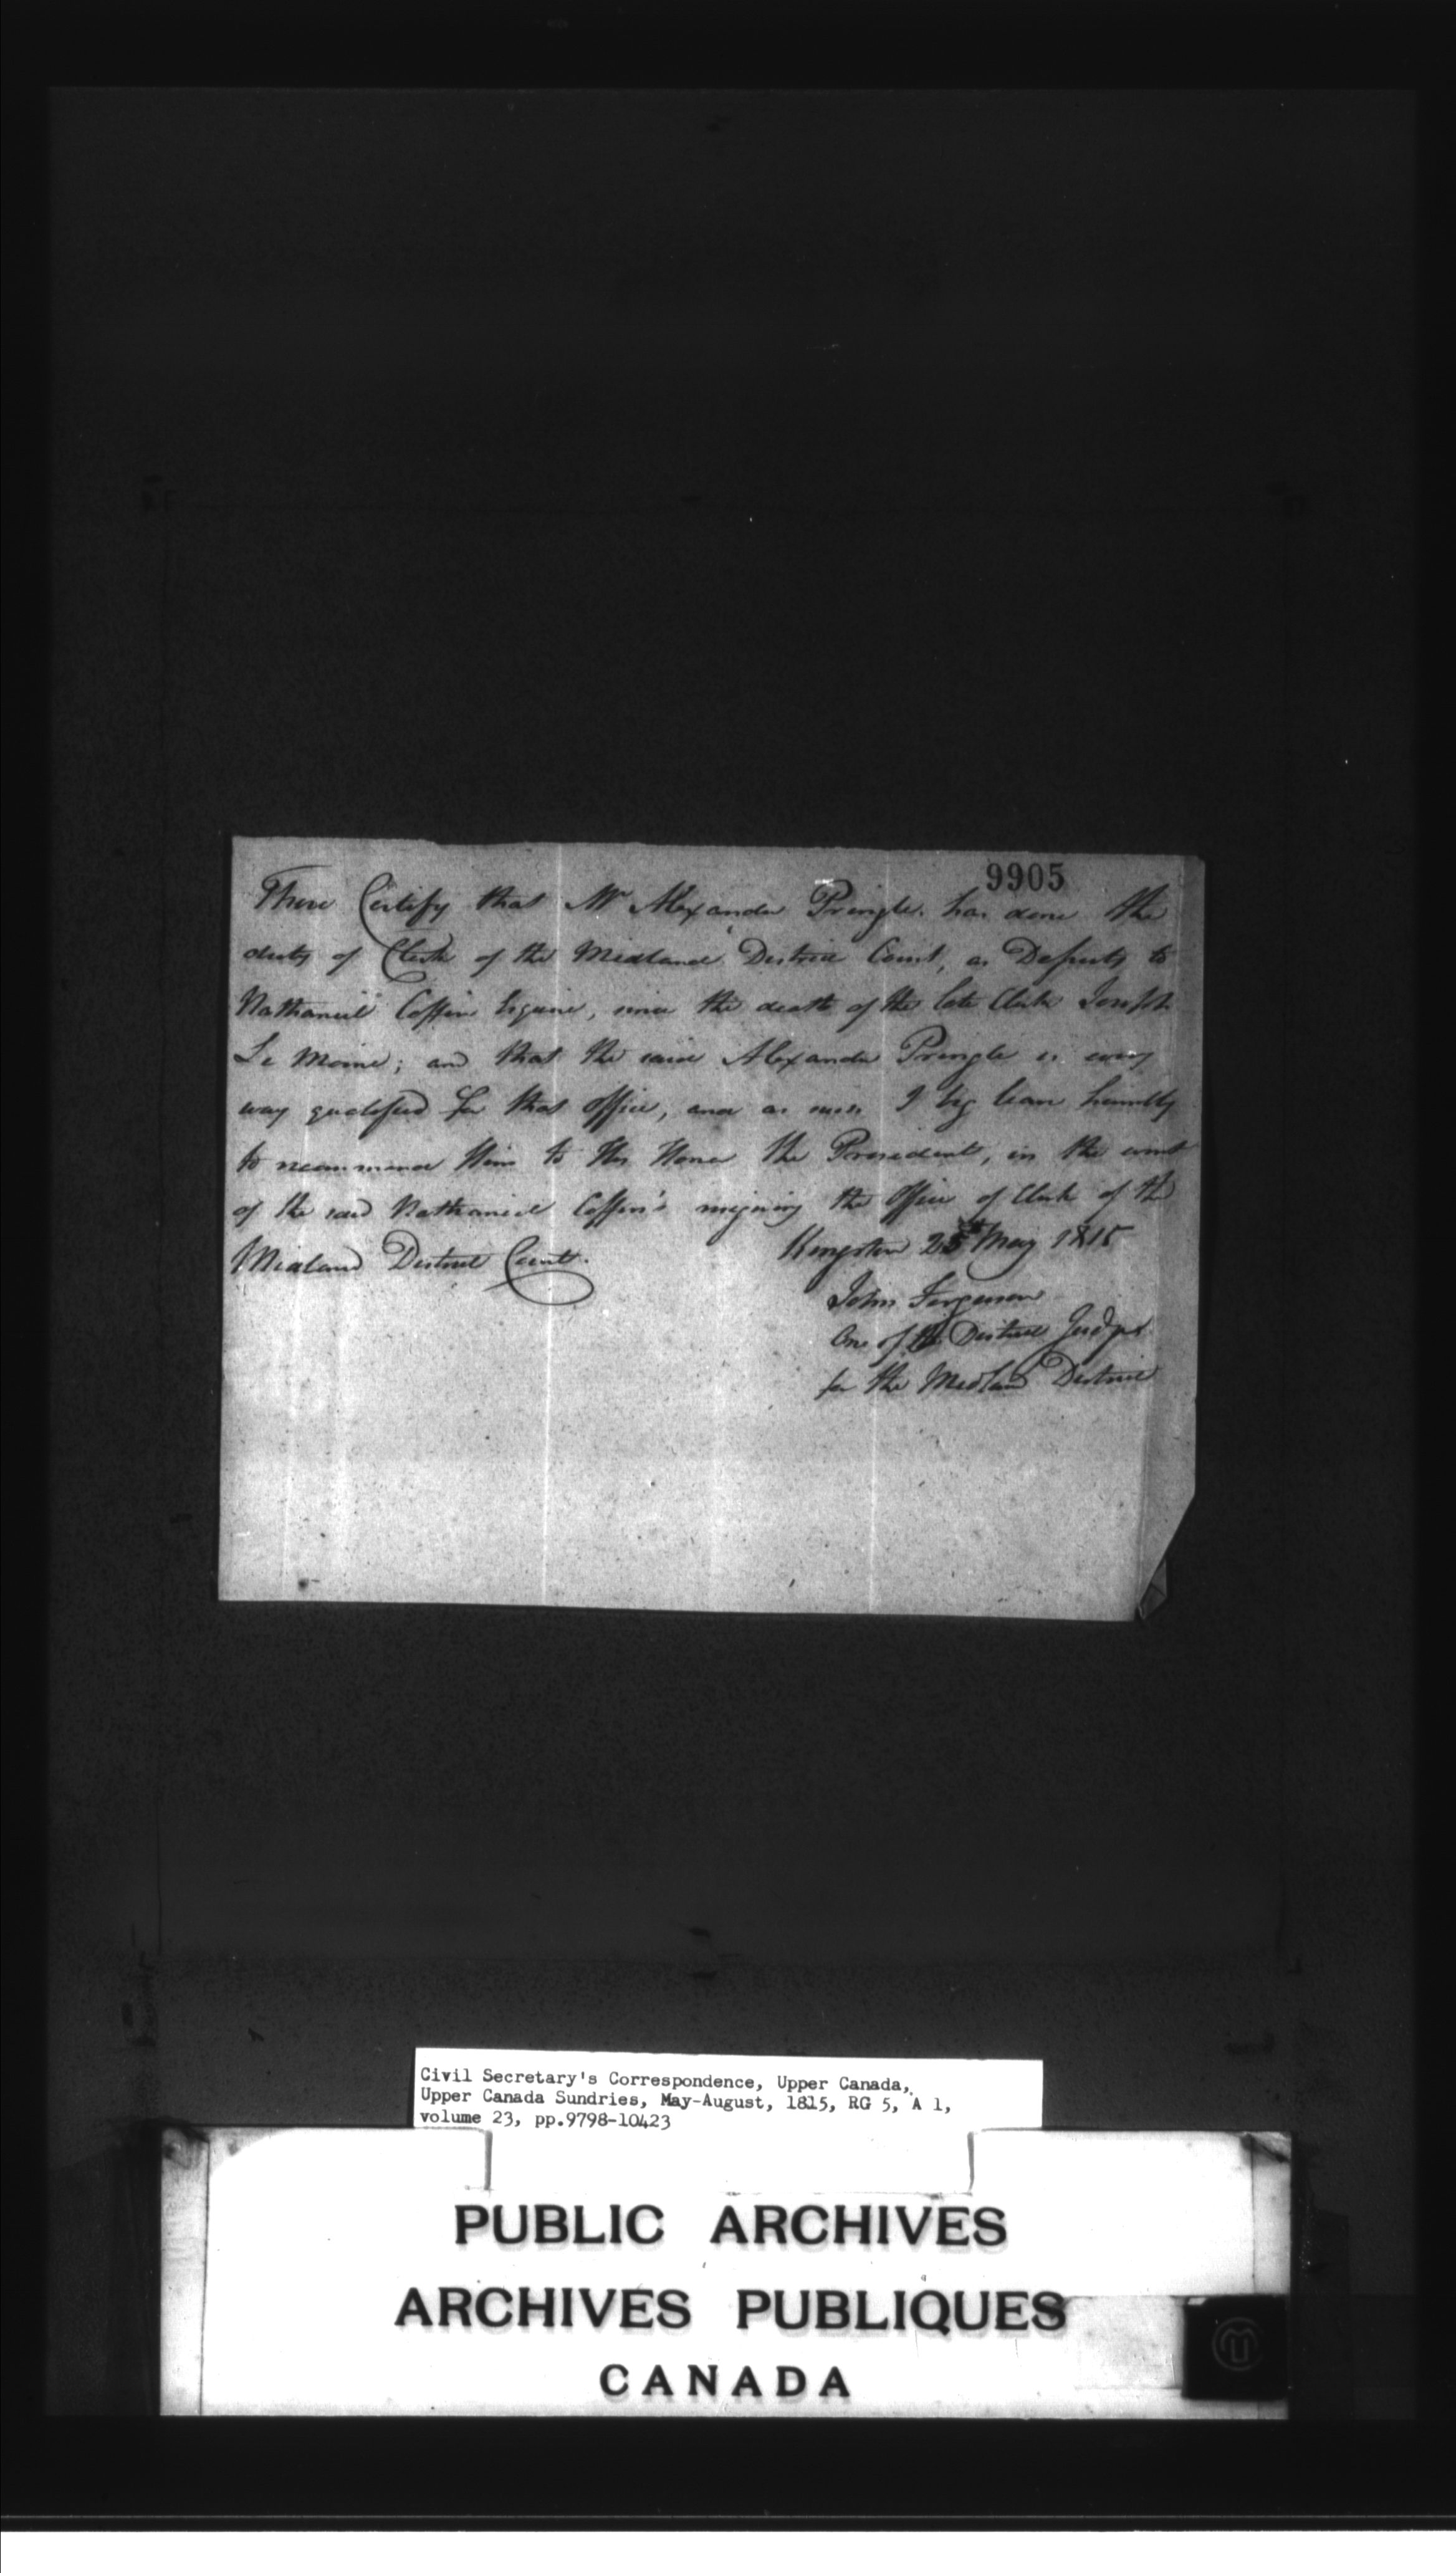 9905
These Certify that Mr Alexander Pringle has done the
duty of Clerk of the Midland District Court, as Deputy to
Nathaniel Coffin Esquire, since the death of the late Clerk Joseph
Le Moine; and that the said Alexander Pringle is every
way qualified for that Office, and as such I beg leave humbly
to recommend Him to His Honor the President, in the event
of the said Nathaniel Coffin's resigning the Office of Clerk of the
Midland District Court.
Kingston 25th May 1815
John Ferguson
One of the District Judges
for the Midland District
Civil Secretary's Correspondence, Upper Canada,
Upper Canada Sundries, May-August, 1815, RG 5, A 1,
volume 23, pp.9798-10423
PUBLIC ARCHIVES
ARCHIVES PUBLIQUES
CANADA